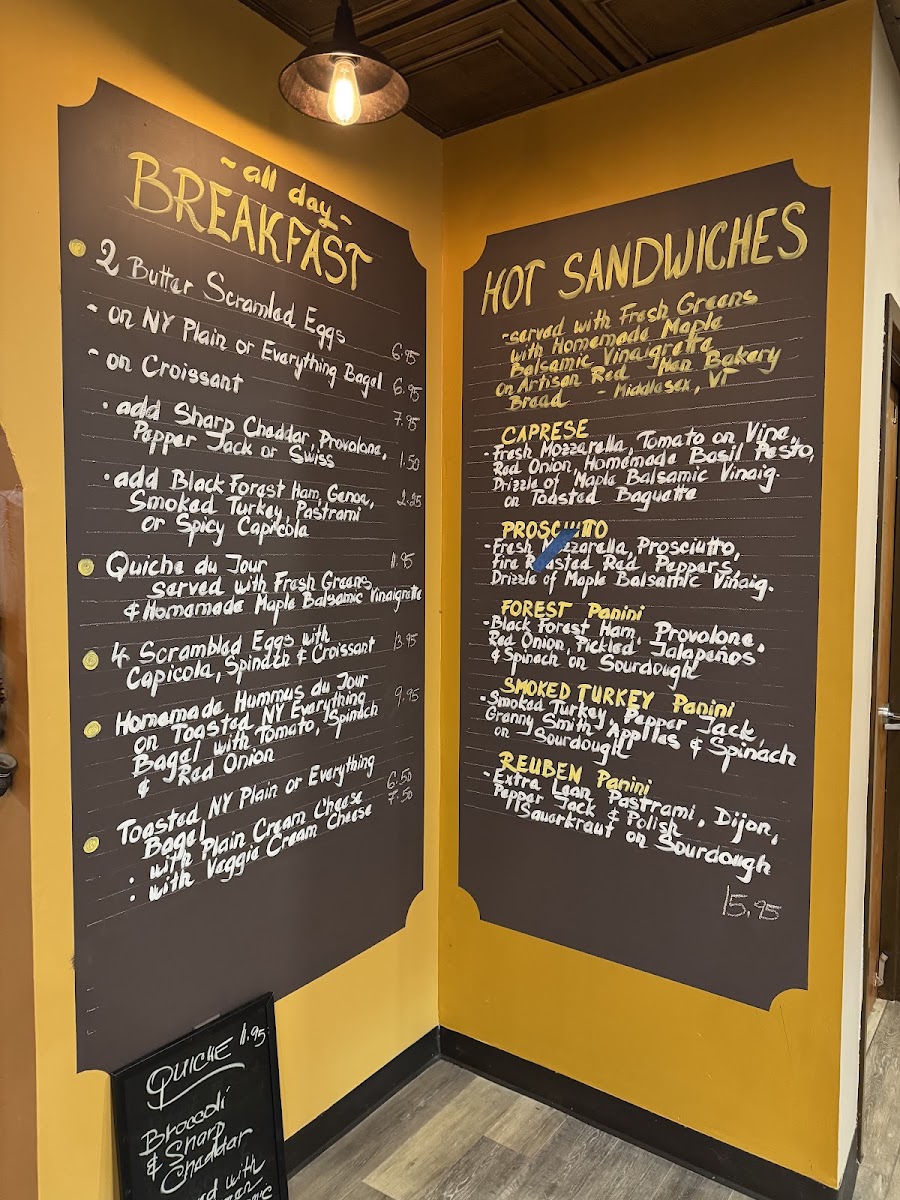 ~ all day ~
BREAKFAST
2 Butter Scrambled Eggs 6.95
- on NY Plain or Everything Bagel 6.95
- on Croissant 7.95
• add Sharp Cheddar, Provolone,
Pepper Jack or Swiss 1.50
• add Black Forest Ham, Genoa, 2.25
Smoked Turkey, Pastrami
or Spicy Capicola
Quiche du Jour 11.95
served with Fresh Greens
& Homemade Maple Balsamic Vinaigrette
4 Scrambled Eggs with 13.95
Capicola, Spinach & Croissant
Homemade Hummus du Jour 9.95
on Toasted NY Everything
Bagel with Tomato, Spinach
& Red Onion
Toasted NY Plain or Everything
Bagel
• with Plain Cream Cheese 6.50
• with Veggie Cream Cheese 7.50
QUICHE 11.95
Broccoli
& Sharp
Cheddar
with
HOT SANDWICHES
-served with Fresh Greens
with Homemade Maple
Balsamic Vinaigrette
on Artisan Red Hen Bakery
Bread - Middlesex, VT
CAPRESE
- Fresh Mozzarella, Tomato on Vine,
Red Onion, Homemade Basil Pesto,
Drizzle of Maple Balsamic Vinaig.
on Toasted Baguette
PROSCIUTTO
- Fresh Mozzarella, Prosciutto,
Fire Roasted Red Peppers,
Drizzle of Maple Balsamic Vinaig.
FOREST Panini
- Black Forest Ham, Provolone,
Red Onion, Pickled Jalapeños
& Spinach on Sourdough
SMOKED TURKEY Panini
- Smoked Turkey, Pepper Jack,
Granny Smith Apples & Spinach
on Sourdough
REUBEN Panini
- Extra Lean Pastrami, Dijon,
Pepper Jack & Polish
Sauerkraut on Sourdough
15.95